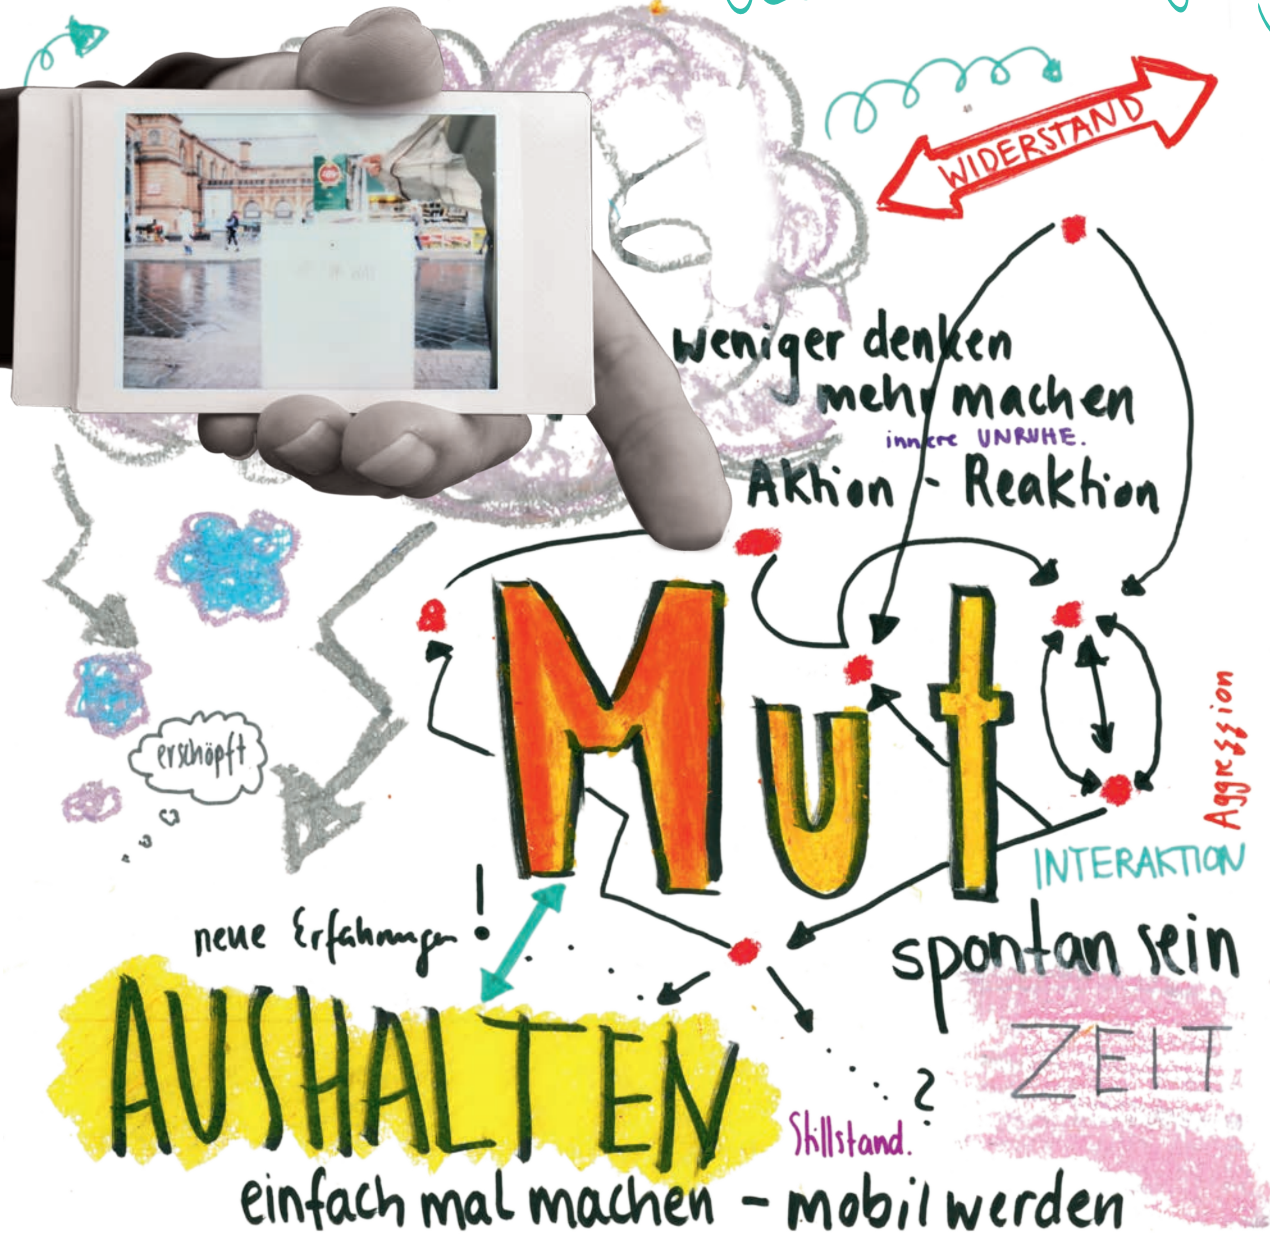 WIDERSTAND
weniger denken
mehr machen
innere UNRUHE.
Aktion - Reaktion
Mut
Aggression
erschöpft
INTERAKTION
neue Erfahrungen!
spontan sein
AUSHALTEN
ZEIT
?
Stillstand.
einfach mal machen - mobil werden